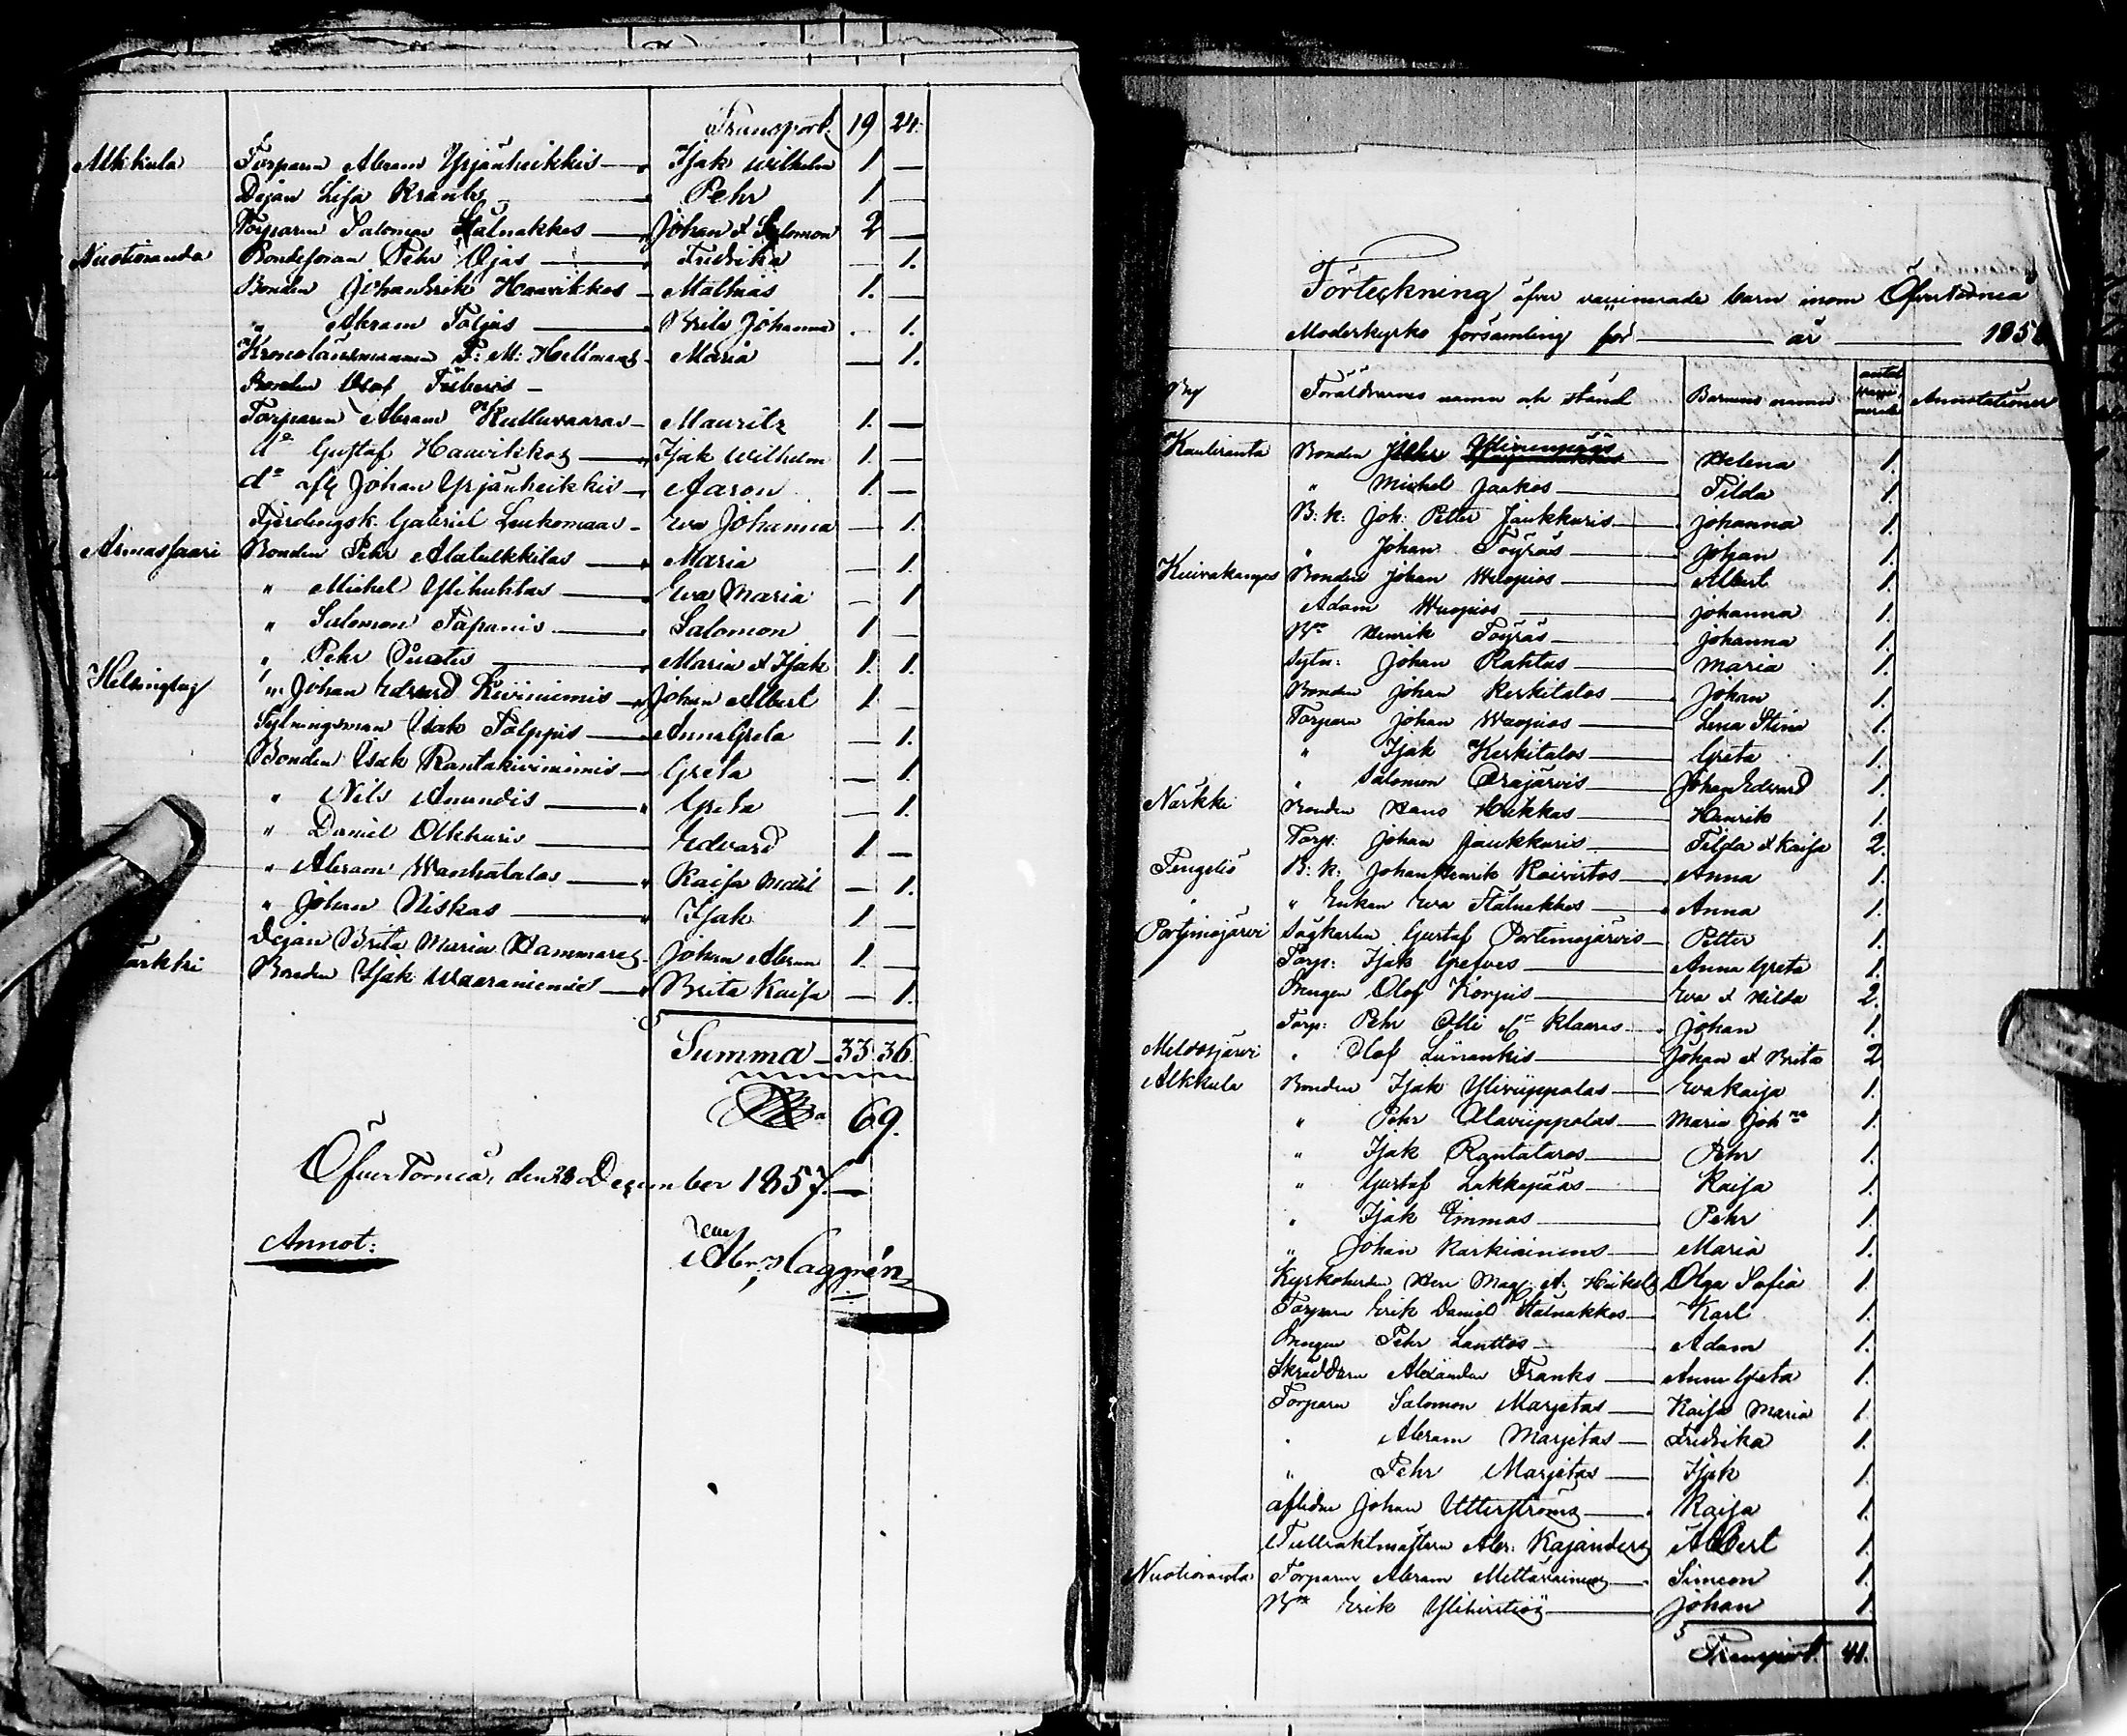 Transport. 19 24.
Alkkula Torparen Abram Yrjänheikkis Isak Wilhelm 1. —
Dejan Lisa Krantz Pehr 1 —
Torparen Salomon Stålnakkes Johan & Salomon 2 —
Nuotioranda Bondesonen Pehr Ojas Fredrika — 1.
Bonden Johan Erik Haavikkos Mathias 1. —
" Abram Toljas Brita Johanna . 1.
Kronolänsmannen P: M: Hellmans Maria — 1.
Bonden Olof
Torparen Abram Kulluvaaras Mauritz 1. —
do Gustaf Haavikkos Isak Wilhelm 1. —
do afl Johan Yrjänheikkis Aaron 1. —
Fjerdingsk. Gabriel Leukomaas Eva Johanna — 1.
Armassaari Bonden Pehr Alatulkkilas Maria — 1.
" Michel Ylihuhtas Eva Maria — 1
" Salomon Tapanis Salomon 1 —
" Pehr Maria & Isak 1. 1.
Helsingby " Johan Edvard Kiviniemis Johan Albert 1 —
Sytningsman Isak Palppis Anna Greta — 1.
Bonden Isak Rantakiviniemis Greta — 1
" Nils Anundis Greta — 1.
" Daniel Olkkuris Edvard 1. —
" Abram Wanhatalos Kaisa — 1.
" Johan Niskas Isak 1 —
Dejan Brita Maria Hammares Johan Abram 1 —
ärkki Bonden Isak Waaraniemis Brita Kaisa — 1.
Summa 33. 36.
69.
ÖfverTorneå, den 28 December 1857.
Annot:
Abr. Haggrén
Förteckning öfver vaccinerade barn inom Öfvertorneå
Moderkyrko församling för år 185
By Föräldrarnes namn och stånd Barnens namn antal vacci-nerade Annotationer
Kauliranta Bonden Helena 1.
" Michel Jaakos Tilda 1.
B: k: Joh: Petter Jaukkuris Johanna 1.
" Johan Töyräs Johan 1.
Kuivakangas Bonden Johan Wuopios Albert 1.
Adam Wuopios Johanna 1.
Bn Henrik Töyräs Johanna 1.
Sytn: Johan Rahtus Maria 1.
Bonden Johan Kerkitalos Johan 1.
Torparn Johan Wuopios Lena Stina 1.
" Isak Kerkitalos Greta 1.
" Salomon Orajärvis Johan Edvard 1.
Närkki Bonden Hans Heikkas Henrik 1.
Torp: Johan Jaukkuris Tilda & Kaisa 2.
Tengeliö B: k: Johan Henrik Koivistos Anna 1.
" " Enkan Eva Stålnakkes Anna 1.
Portimojärvi Sågkarlen Gustaf Portimojärvis Petter 1.
Torp: Isak Grefves Anna Greta 1.
Drengen Olof Korpis Eva & Hilda 2.
Torp: Pehr Olli Klaaras Johan 1.
Meltosjärvi " Olof Liinankis Johan & Brita 2
Alkkula Bonden Isak Yliviippolas Eva Kaisa 1.
" Pehr Alaviippolas Maria Johna 1.
" Isak Rantataros Pehr 1.
" Gustaf Lakkapääs Kaisa 1.
" Isak Emmas Pehr 1.
" Johan Karkiainens Maria 1.
Kyrkoherden Herr Mag: A: Heikels Olga Sofia 1.
Torparn Erik Daniel Stålnakkes Karl 1.
Drengen Pehr Lanttos Adam 1.
Skräddarn Alexander Franks Anna Greta 1.
Torparn Salomon Marjetas Kaisa Maria 1.
" Abram Marjetas Fredrika 1.
" Pehr Marjetas Isak 1.
aflidne Johan Utterströms Kaisa 1.
Tullvaktmästarn Abr: Kajanders Albert 1.
Nuotioranta Torparen Abram Mettävainios Simeon 1.
Bn Erik Johan 1.
Transport. 41.